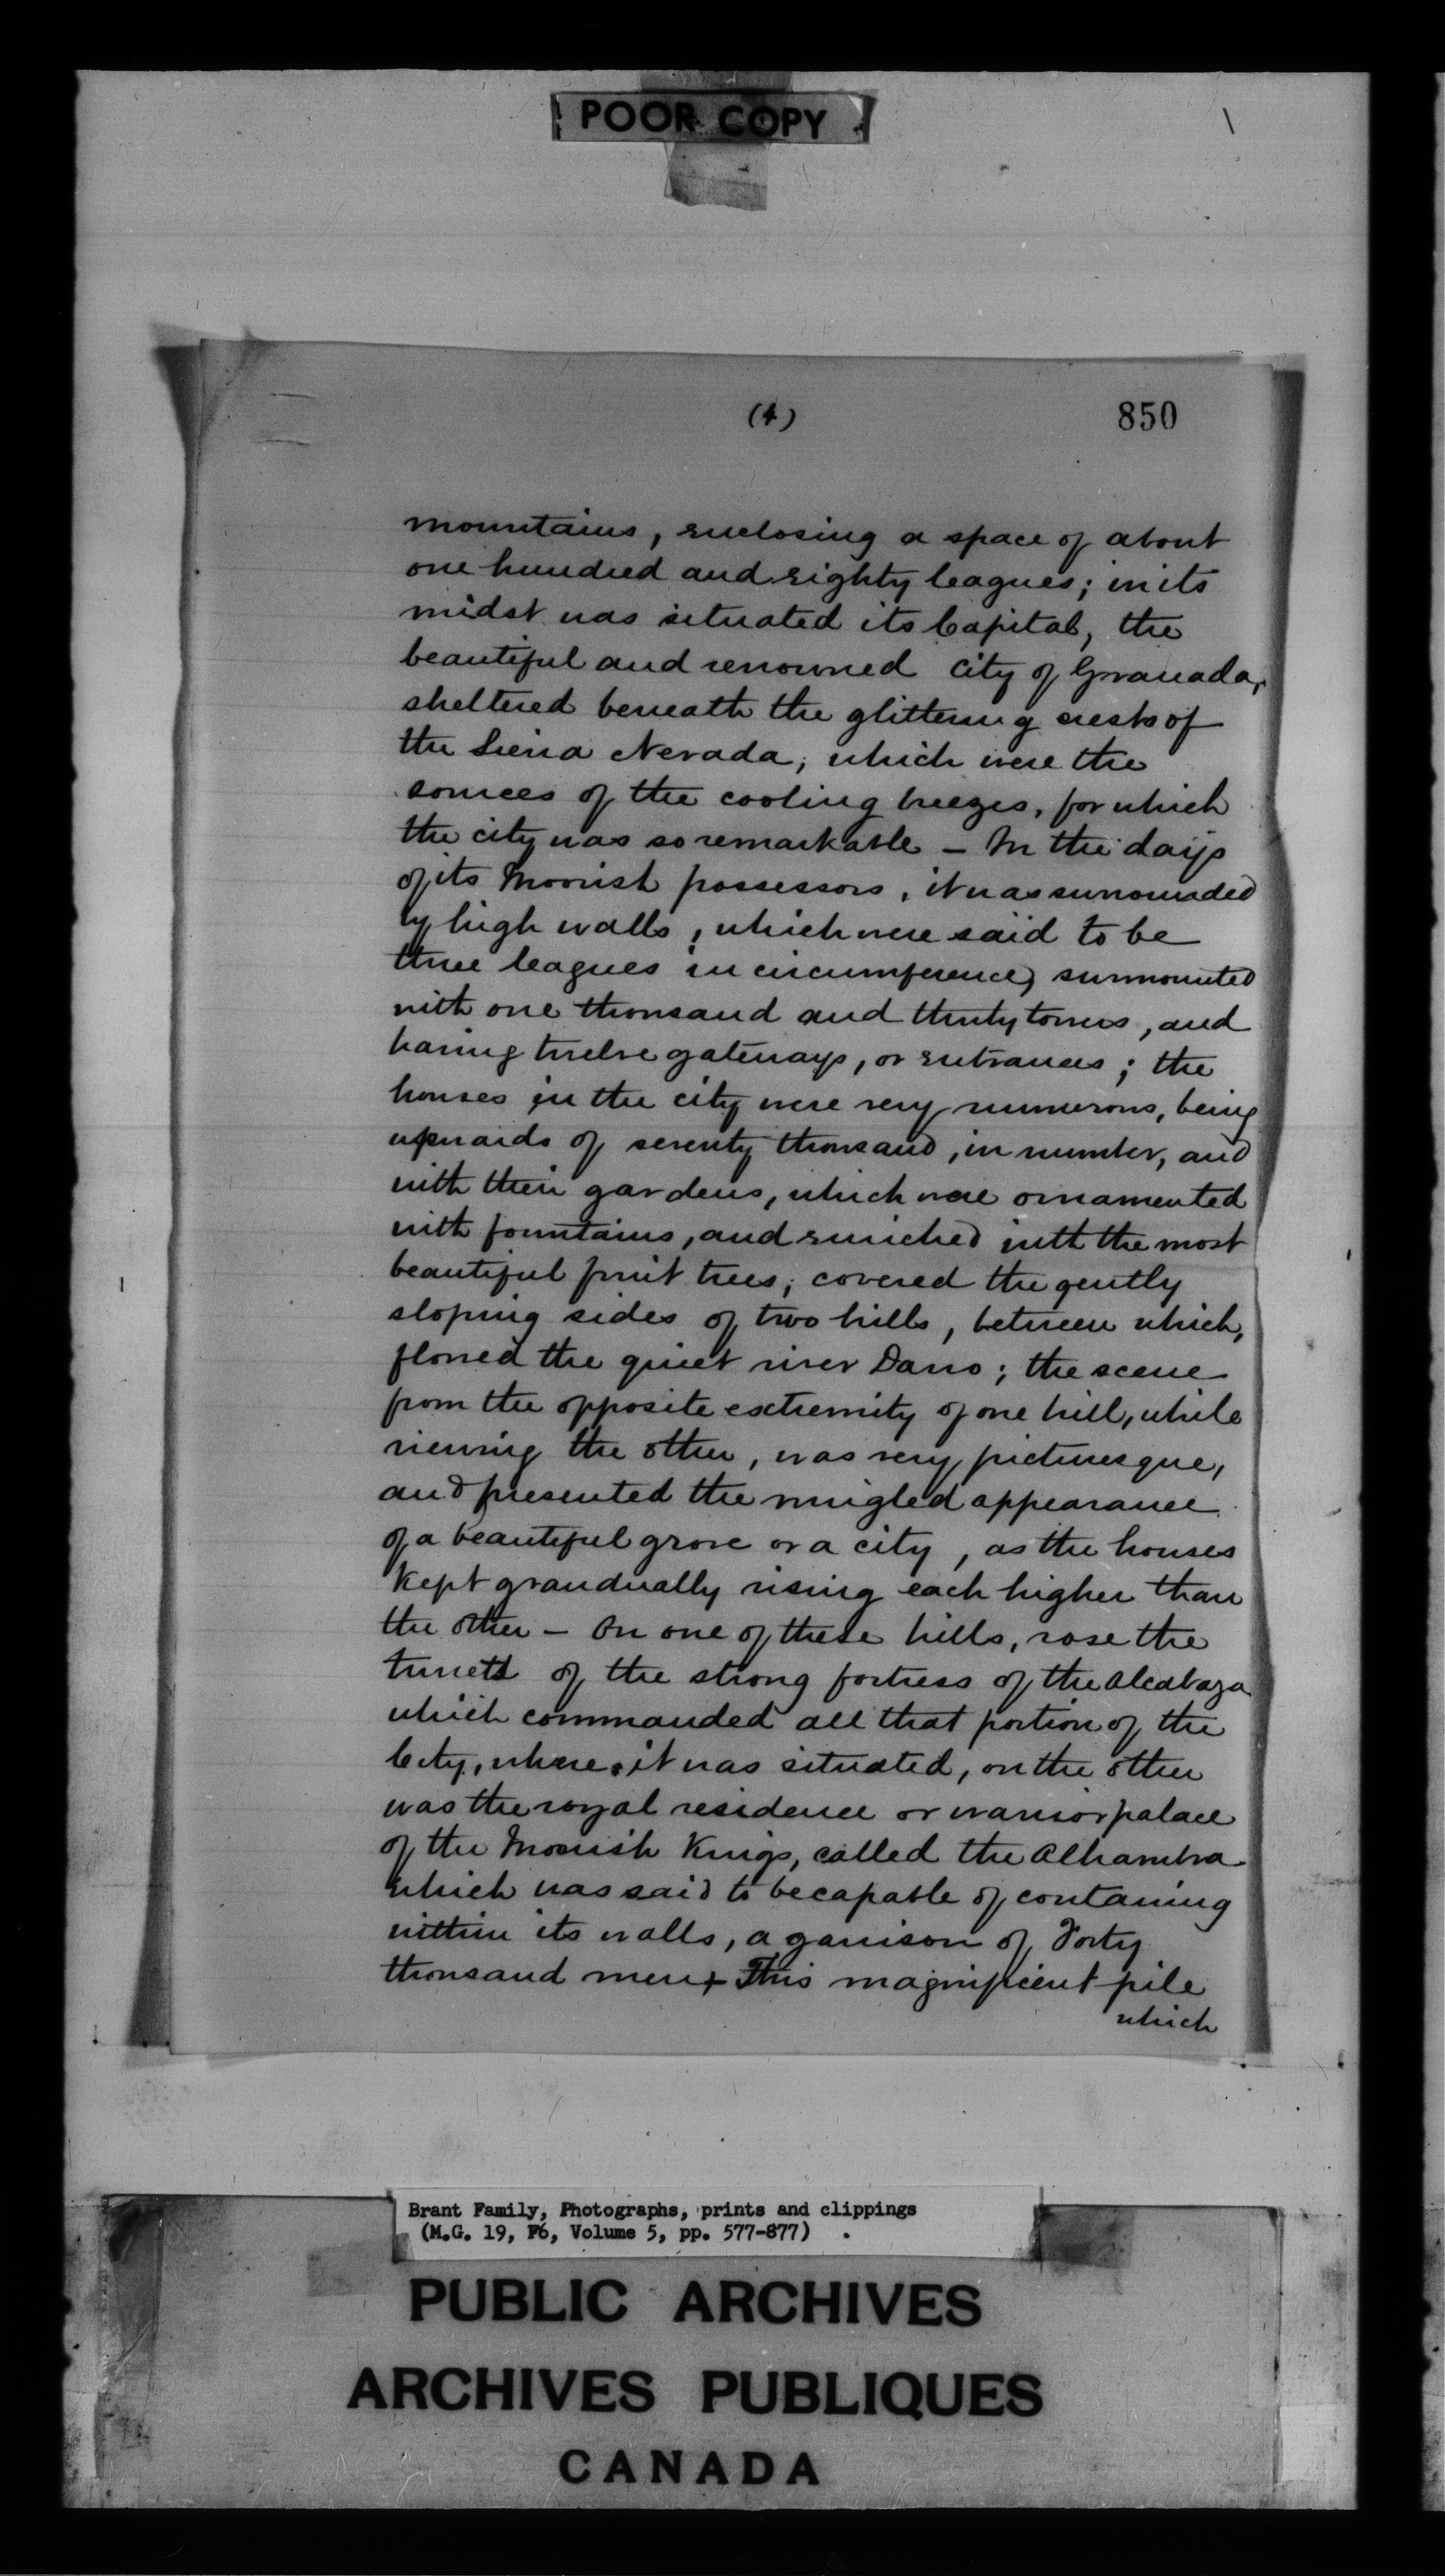 POOR COPY
(4)
850
mountains, enclosing a space of about
one hundred and eighty leagues; in its
midst was situated its Capital, the
beautiful and renowned City of Granada,
sheltered beneath the glittering crests of
the Sierra Nevada, which were the
sources of the cooling breezes, for which
the city was so remarkable – In the days
of its Moorish possessors, it was surrounded
by high walls, which were said to be
three leagues in circumference, surmounted
with one thousand and thirty towers, and
having twelve gateways, or entrances; the
houses in the city were very numerous, being
upwards of seventy thousand, in number, and
with their gardens, which were ornamented
with fountains, and enriched with the most
beautiful fruit trees, covered the gently
sloping sides of two hills, between which,
flowed the quiet river Darro; the scene
from the opposite extremity of one hill, while
viewing the other, was very picturesque,
and presented the mingled appearance
of a beautiful grove or a city, as the houses
kept grandually rising each higher than
the other – On one of these hills, rose the
turrets of the strong fortress of the Alcabaza
which commanded all that portion of the
City, where it was situated, on the other
was the royal residence or warrior palace
of the Moorish Kings, called the Alhambra
which was said to be capable of containing
within its walls, a garrison of Forty
thousand men + This magnificent pile
which
Brant Family, Photographs, prints and clippings
(M.G. 19, F6, Volume 5, pp. 577-877)
PUBLIC ARCHIVES
ARCHIVES PUBLIQUES
CANADA